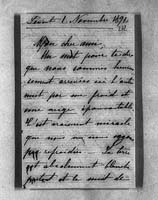 1 Novembre 1892
Mon cher ami,
Un mot pour te dire
que nous sommes heureu-
sement arrivées ici l'autre
nuit par un froid et
une neige épouvantable
C'est vraiment miracle
que nous
pas refroidies. Le
est absolument blanc
partout et le vent de